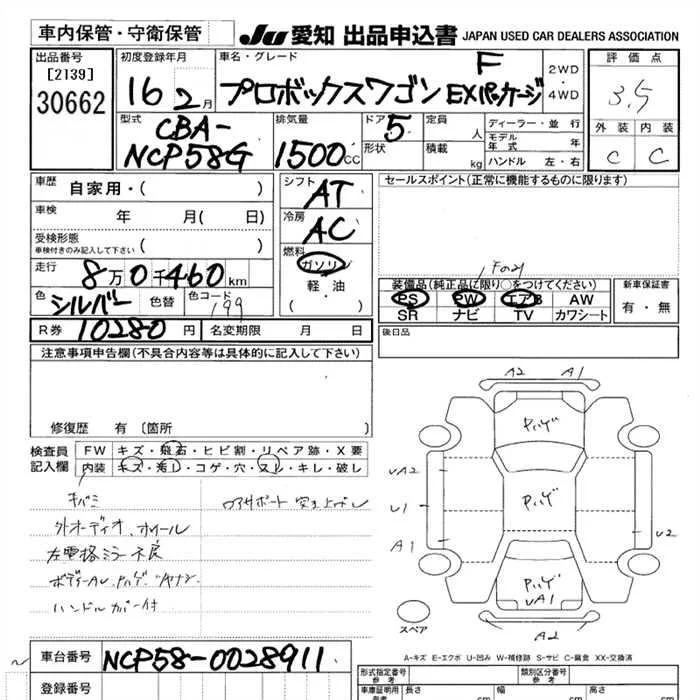 車内保管・守衛保管
JU 愛知 出品申込書 JAPAN USED CAR DEALERS ASSOCIATION
出品番号
[2139]
30662
初度登録年月
16 2月
車名・グレード
プロボックスワゴン F EXパッケージ
2WD
・
4WD
評価点
3.5
外装 内装
C C
型式
CBA-
NCP58G
排気量
1500CC
ドア 5
形状
定員 人
積載 kg
ディーラー・並行
モデル年式 年
ハンドル 左・右
車歴 自家用・( )
車検 年 月( 日)
受検形態
車検付きのみ記入して下さい ( )
走行 8万0千460km
色 シルバー 色替 色コード 199
R券 10280円 名変期限 月 日
シフト AT
冷房 AC
燃料
ガソリン
軽油
( )
セールスポイント(正常に機能するものに限ります)
装備品(純正品に限り○をつけてください)
PS PW エアB AW
SR ナビ TV カワシート
新車保証書
有・無
後日品
注意事項申告欄(不具合内容等は具体的に記入して下さい)
修復歴 有 〔箇所 〕
検査員
記入欄
FW キズ・飛石・ヒビ割・リペア跡・X要
内装 キズ・汚レ・コゲ・穴・スレ・キレ・破し
キバミ
外オーディオ、ホイール
左電格ミラー不良
ハンドルカバー付
ロアサポート 突き上げ
A2 A1
ハゲ
UA2
U1
A1
ハゲ
U2
ハゲ
UA1
A2
スペア
A-キズ E-エクボ U-凹み W-補修跡 S-サビ C-腐食 XX-交換済
車台番号 NCP58-0028911
登録番号
形式指定番号
参考
類別区分番号
参考
車庫証明用
参考
長さ cm
幅 cm
高さ cm